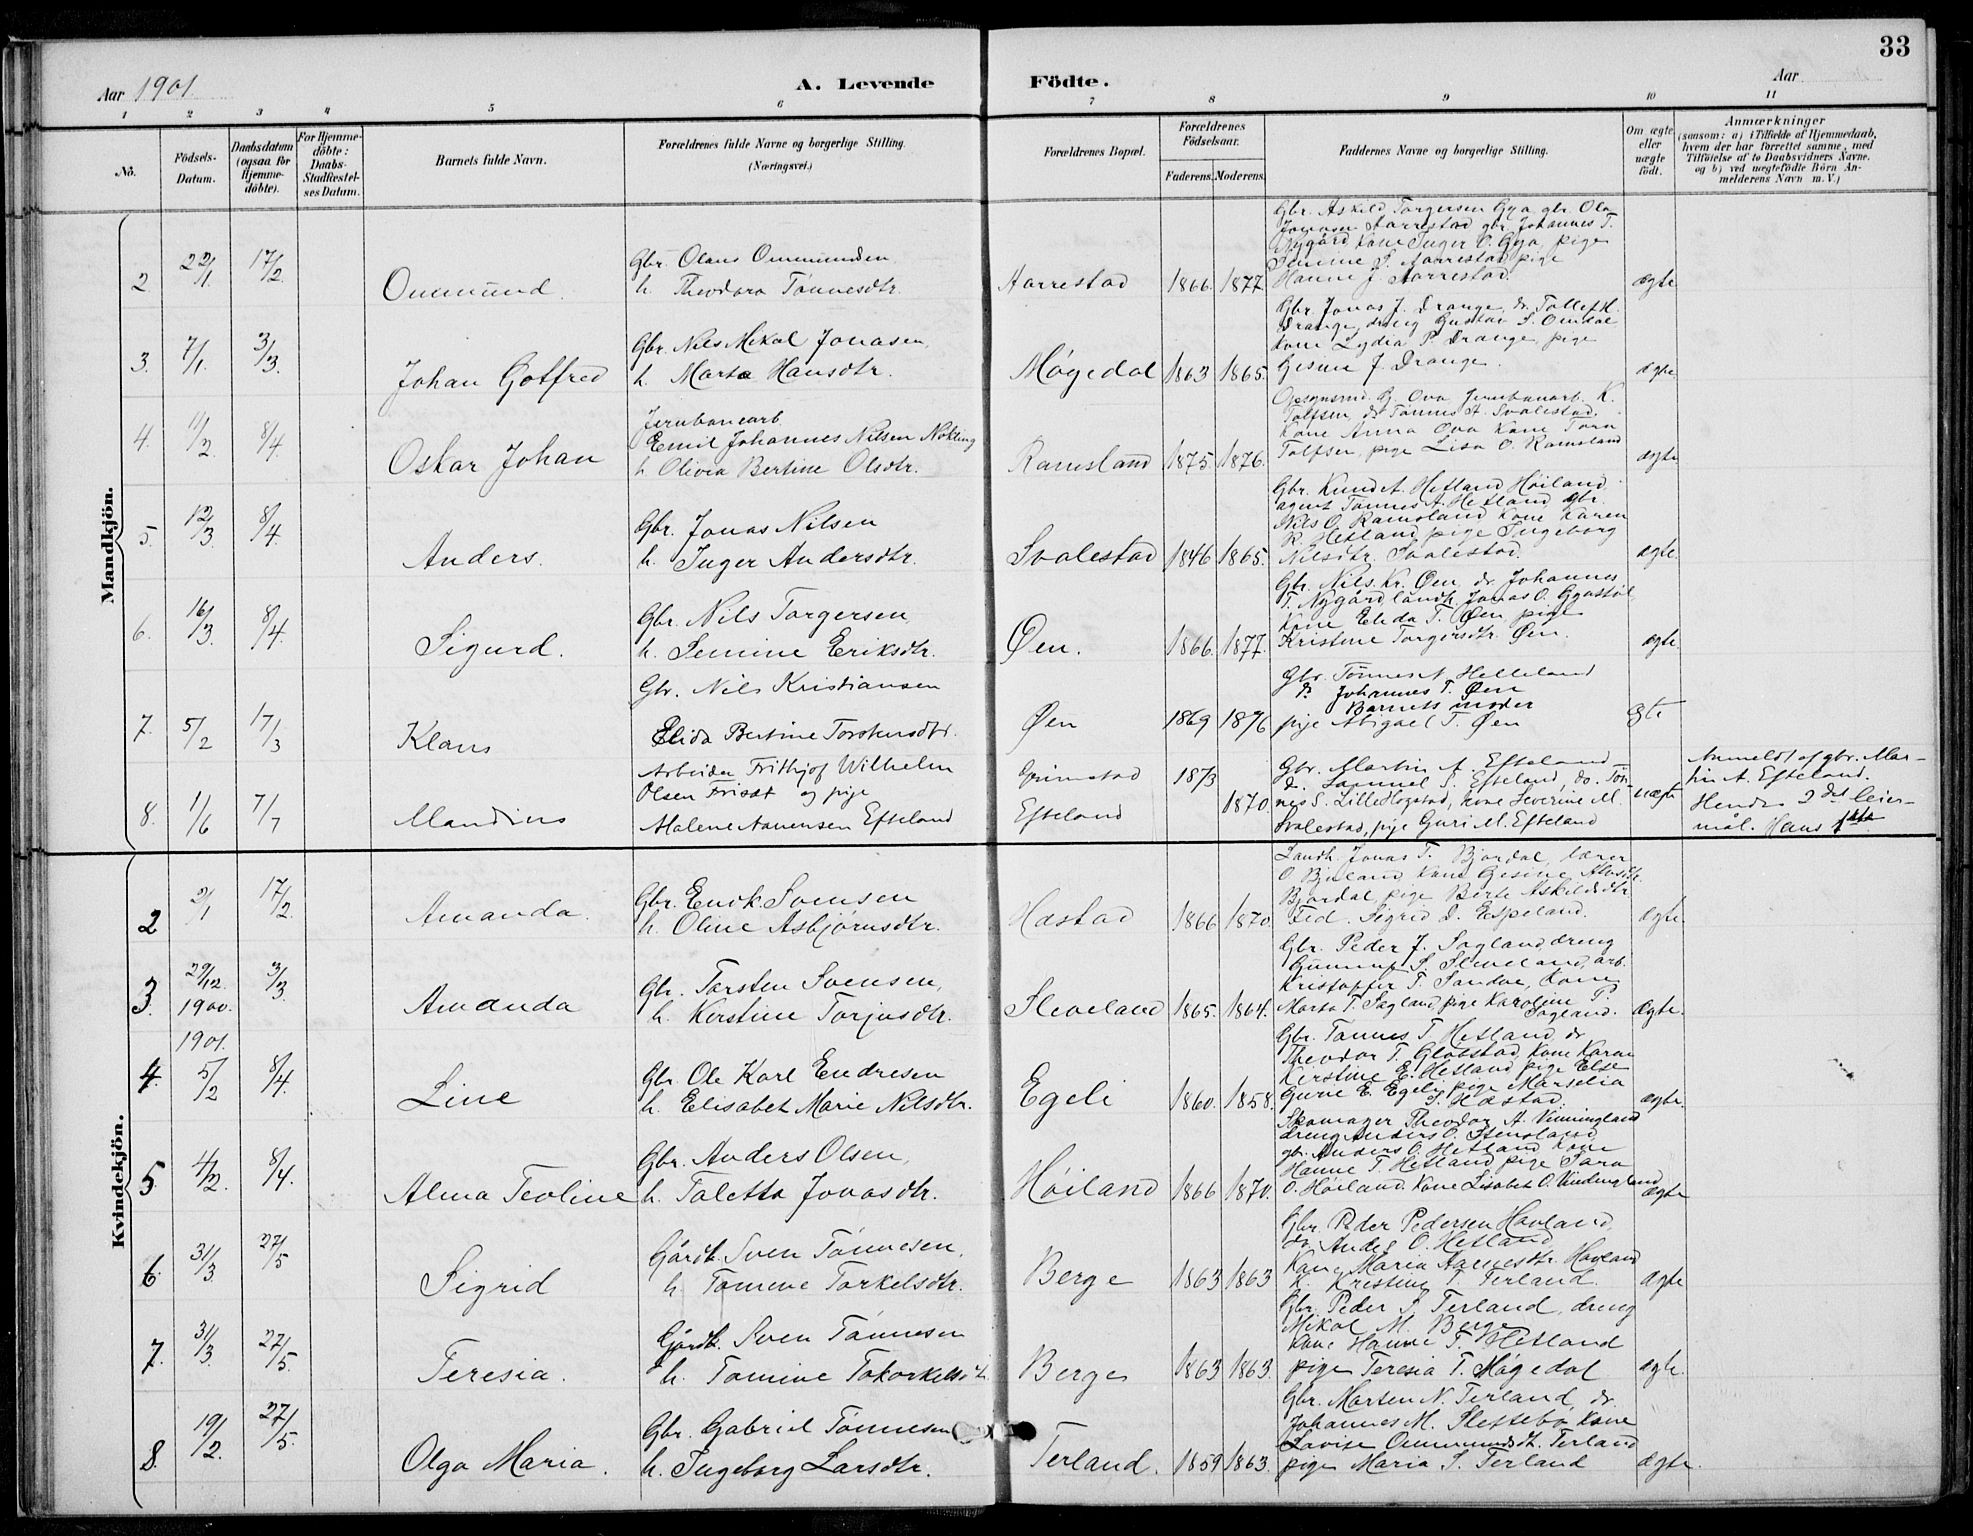 33
Aar 1901
A. Levende
Födte.
Aar
1 2 3 4 5 6 7 8 9 10 11
No.
Födsels-
Datum.
Daabsdatum
(ogsaa for
Hjemme-
döbte).
For Hjemme-
döbte:
Daabs-
Stadfæstel-
ses Datum.
Barnets fulde Navn.
Forældrenes fulde Navne og borgerlige Stilling.
(Næringsvei.)
Forældrenes Bopæl.
Forældrenes
Födselsaar.
Faderens. Moderens.
Faddernes Navne og borgerlige Stilling.
Om ægte
eller
uægte
födt.
Anmærkninger
(saasom: a) i Tilfælde af Hjemmedaab,
hvem der har forrettet samme, med
Tilföielse af to Daabsvidners Navne.
og b) ved uægtefödte Börn An-
melderens Navn m. V.)
Mandkjön.
2 22/1 17/2 Ommund.
Gbr. Olaus Ommundsen
h. Theodora Tønnesdtr.
Aarrestad 1866. 1877.
Gbr. Askild Torgersen Gya gbr. Ola
Jonasen Aarrestad gbr. Johannes T.
Nygård kone Inger O. Gya, pige
Semine S. Aarrestad pige
Hanne J. Aarrestad.
ægte
3. 7/1. 3/3. Johan Gotfred
Gbr. Nils Mikal Jonasen,
h. Marta Hansdtr.
Møgedal 1863 1865.
Gbr. Jonas J. Drange, do. Tollef H.
Drange, dreng Gustav S. Omdal
kone Lydia P. Drange, pige
Gesine J. Drange.
ægte
4. 11/2. 8/4. Oskar Johan
Jernbanearb.
Emil Johannes Nilsen Nøkling
h. Olivia Bertine Olsdtr.
Ramsland 1875. 1876.
Ova Jernbanearb. K.
Tolfsen do Tønnes A. Svalestad.
Kone Anna Ova Kone Tora
Tolfsen, pige Lisa O. Ramsland
ægte
5. 12/3. 8/4. Anders.
Gbr. Jonas Nilsen
h. Inger Andersdtr.
Svalestad 1846 1865.
Gbr. Knud A. Hetland Høiland.
agent Tønnes A. Hetland gbr.
Nils O. Ramsland kone Karen
R. Hetland pige Ingeborg
Nilsdtr. Svalestad.
ægte
6. 16/3. 8/4. Sigurd.
Gbr. Nils Torgersen,
h. Semine Eriksdtr.
Øen. 1866. 1877.
Gbr. Nils Kr. Øen, do. Johannes
T. Nygård, landh. Jonas O. Gyastøl,
kone Elida T. Øen pige
Kristine Torgersdtr. Øen.
ægte.
7. 5/2 17/3 Klaus
Gbr. Nils Kristiansen
Elida Bertine Torstensdtr.
Øen 1869 1876
Gbr. Tønnes A Helleland
do Johannes T. Øen
Barnets moder
pige Abigael T. Øen
ægte
8. 1/6 7/7 Mandius
Arbeider Frithjof Wilhelm
Olsen Fristt og pige
Malene Aanensen Efteland
Grimstad
Efteland
1873
1870
Gbr. Martin A. Efteland
do. Samuel S. Efteland, do. Tøn-
nes S. Lille Hogstad, kone Severine M.
Svalestad, pige Guri M. Efteland
uægte
Anmeldt af gbr. Mar-
tin A. Efteland.
Hendes 2det leier-
mål. Hans 1ste
Kvindekjön.
2 2/1 17/2. Amanda.
Gbr. Endk. Svensen
h. Oline Asbjørnsdtr.
Hæstad 1866 1870.
Landh. Jonas T. Bjordal, lærer
O Bjuland kone Gesine
Bjordal pige Berte Askildsdtr.
Eed. Sigrid D. Espeland.
ægte.
3. 29/12. 1900. 3/3. Amanda
Gbr. Torsten Svensen,
h. Kerstine Torjusdtr.
Sleveland 1865. 1864.
Gbr. Peder J. Sagland, dreng
Gunnuf S. Sleveland, arb.
Kristoffer T. Sandve, kone
Marta T. Sagland, pige Karoline P.
Sagland.
ægte.
1901.
4. 5/2 8/4. Line
Gbr. Ole Karl Endresen
h. Elisabet Marie Nilsdtr.
Egeli 1860. 1858.
Gbr. Tønnes T Hetland, do
Theodor T. Glopstad, kone Karen
Kirstine E. Hetland pige Else
Gurie E. Egeli, pige Marselia
S. Hæstad.
ægte.
5. 4/2. 8/4. Alma Teoline
Gbr. Anders Olsen,
h. Taletta Jonasdtr.
Høiland 1866 1870.
Skomager Theodor A. Vinningland
dreng Anders O. Stensland,
gbr. Anders O. Hetland kone
Hanne T. Hetland pige Sara
O. Høiland. Kone Lisabet O. Vindingland
ægte
6. 31/3 27/5 Sigrid
Gårdb. Sven Tønnesen,
h. Tomine Torkelsdtr.
Berge 1863 1863
Gbr. Peder Pedersen Havland,
do. Andes O. Hetland
Kone Maria Aanesdtr. Havland
K. Kristine T. Terland.
ægte
7. 31/3. 27/5. Teresia.
Gårdb. Sven Tønnesen
h. Tomine
Berge 1863 1863.
Gbr. Peder S. Terland, dreng
Mikal M. Berge
kone Hanne T. Hetland
pige Teresia T. Møgedal
ægte.
8. 19/2. 27/5. Olga Maria.
Gbr. Gabriel Tønnesen
h. Ingeborg Larsdtr.
Terland. 1859 1863.
Gbr. Morten N. Terland, do
Johannes M. Slettebø kone
Lovise Ommundsdt. Terland
pige Maria S. Terland
ægte.